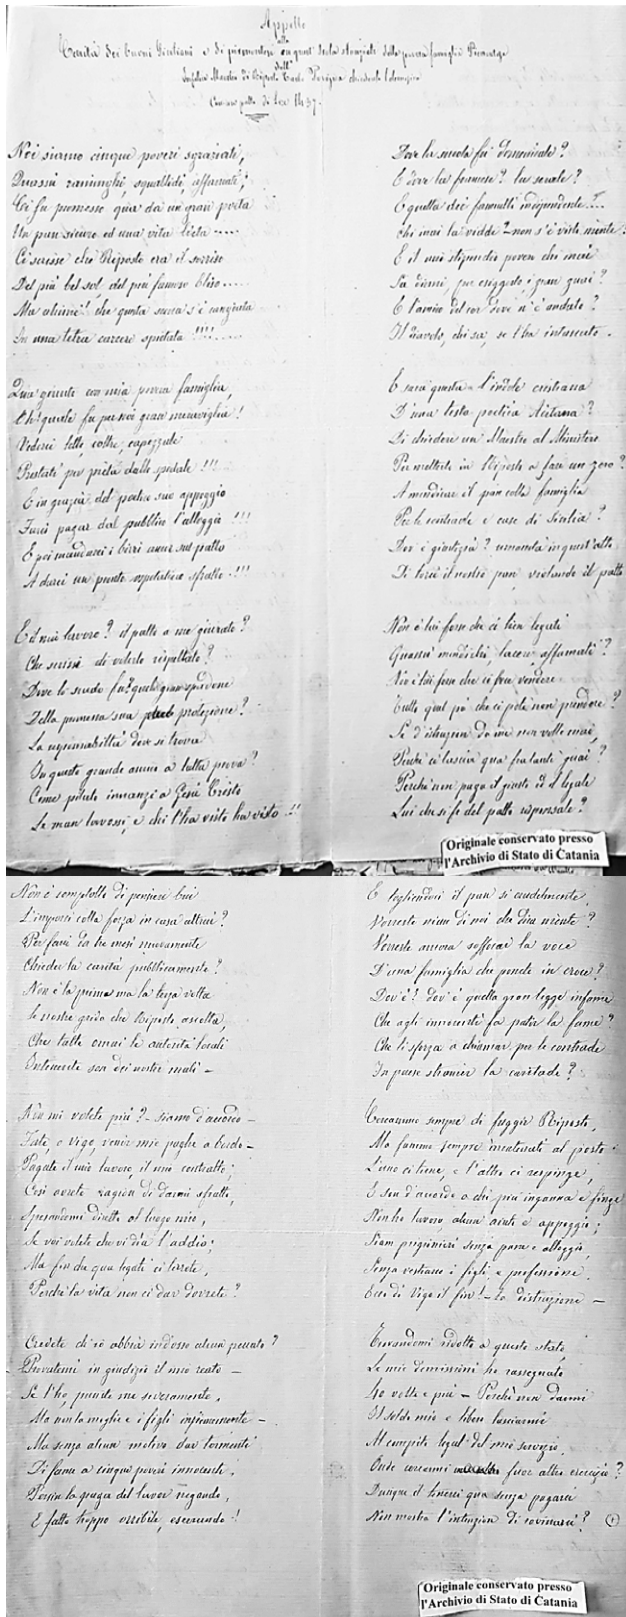 Appello
alla
Carità dei buoni Giulliani e di piemontesi
dell'
Infelice Maestro di Riposto Carlo
Noi siamo cinque poveri sgraziati,
Quassù raminghi, squallidi, affamati;
Ci fu promesso qua da un gran poeta
Un pan sicuro ed una vita lieta .....
Ci scrisse che Riposto era il sorriso
Del più bel sol del più famoso Eliso.....
Ma ahimè! che questa sacca s'è cangiata
In una tetra carcere spietata !!!!.....
Qua giunti con mia povera famiglia,
Oh! quale fu per noi gran meraviglia!
Vederci letti, coltre, capezzale
Prestati per pietà dallo spedale !!!
E in grazia del poeta suo appoggio
Farci pagar dal pubblico l'alloggio !!!
E poi mandarci i birri anche sul patto
A darci un pronto sfratto !!!
Ed il mio lavoro? il patto a me giurato?
Che scrisse di volerlo rispettato?
Dove lo scudo fu? quel gran spadone
Della promessa sua protezione?
La responsabilità dove si trova
In questo grande amico a tutta prova?
Come Pilato innanzi a Gesù Cristo
Le man lavossi, e chi l'ha visto ha visto !!
Dove la scuola fu domenicale?
E dove la francese? la serale?
E quella dei fanciulli indipendente?...
Chi mai la vidde? - non s'è vista niente!
E il mio stipendio povero che mai
Fa d'uopo, per esiggerlo i gran guai?
E l'amico del cor dove n'è andato?
Il Diavolo, chi sa, se l'ha intascato.
E sarà questa l'indole cristiana
D'una testa poetica Aretana?
Di chiedere un Maestro al Ministero
Per metterlo in Riposto a fare un zero?
A mendicar il pan colla famiglia
Per le contrade e case di Sicilia?
Dov'è giustizia? umanità in quest'atto
Di torci il nostro pan violando il patto
Non è lui forse che ci tien legati
Quassù mendichi, laceri affamati?
Non è lui forse che ci fea vendere
Tutto quel più che ci potè non prendere?
Se d'istruzion da me non volle mai,
Perchè ci lascia qua fra tanti guai?
Perchè non paga il giusto ed il legale
Lui che si fe del patto responsale?
Originale conservato presso
l'Archivio di Stato di Catania
Non è complotto di pensieri bui
L'imporsi colla forza in casa altrui?
Per farci da tre mesi nuovamente
Chieder la carità pubblicamente?
Non è la prima ma la terza volta
Le nostre grida che Riposto ascolta,
Che tutte omai le autorità locali
son dei nostri mali -
Non mi volete più? - siamo d'accordo -
Fate, o Vigo, venir mie paghe a bordo -
Pagate il mio lavoro, il mio contratto;
Così avrete ragion di darmi sfratto,
Spesandomi diretto al luogo mio,
Se voi volete che vi dia l'addio;
Ma fin da qua legati ci terrete,
Perchè la vita non ci dar dovrete?
Credete ch'io abbia indosso alcun peccato?
Provatemi in giudizio il mio reato -
Se l'ho, punite me severamente,
Ma non la moglie e i figli infamemente -
Ma senza alcun motivo dar tormenti
Di fame a cinque poveri innocenti,
Persin la paga del lavor negando,
È fatto troppo orribile, esecrando!!
E togliendoci il pan sì crudelmente,
Vorreste niun di noi che dica niente?
Vorreste ancora soffocar la voce
D'una famiglia che pende in croce?
Dov'è! dov'è quella gran legge infame
Che agli innocenti fa patir la fame?
Che li sforza a chiamar per le contrade
In paese stranier la caritade?
Cercammo sempre di fuggir Riposto,
Ma fummo sempre incatenati al posto:
L'uno ci tiene, e l'altro ci respinge,
E son d'accordo a chi più inganna e finge
Non ho lavoro, alcun aiuto e appoggio;
Siam prigionieri senza pane e alloggio,
Senza vestiario i figli, e professione.
Ecco di Vigo il fin! - La distruzione -
Trovandomi ridotto a questo stato,
Le mie demissioni ho rassegnato
40 volte e più - Perchè non darmi
Il soldo mio e liber lasciarmi
Al compito legal del mio servizio.
Onde cercarmi fuor altro esercizio?
Dunque il tenerci qua senza pagarci
Non mostra l'intenzion di rovinarci?
Originale conservato presso
l'Archivio di Stato di Catania